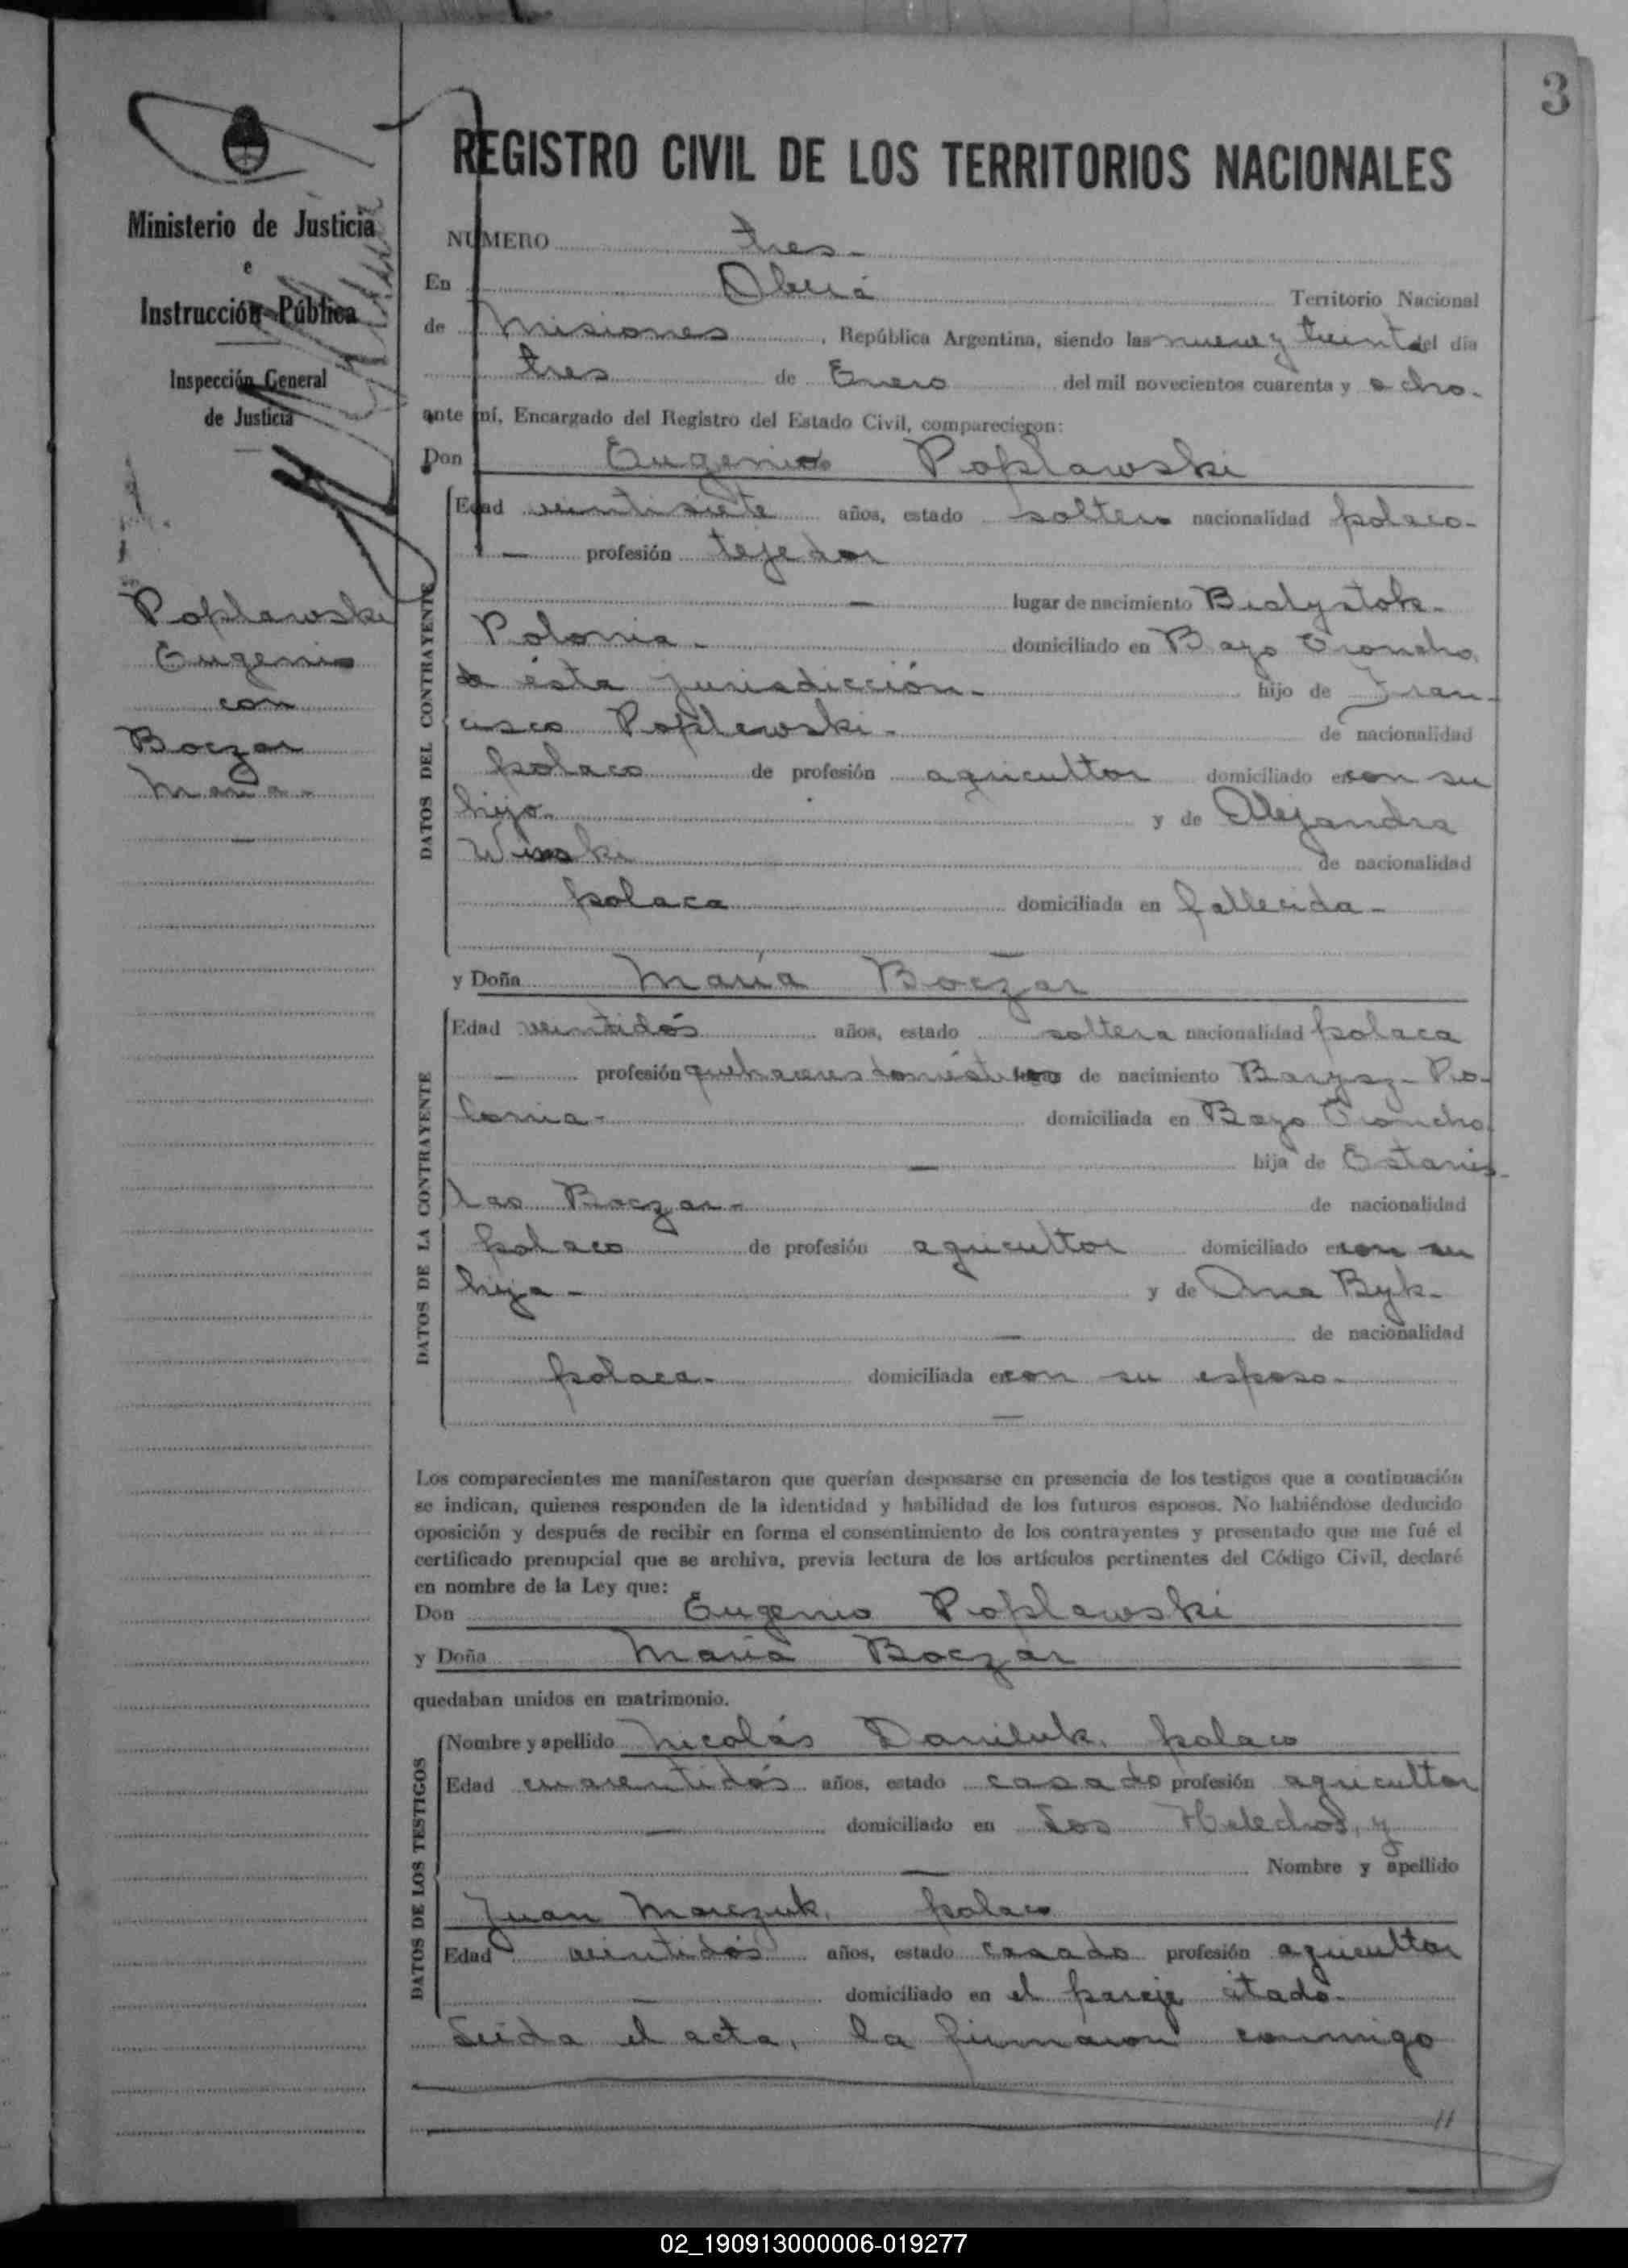 3
Ministerio de Justicia
e
Instrucción Pública
Inspección General
de Justicia
Poplawski
Eugenio
con
Boczar
Maria -
REGISTRO CIVIL DE LOS TERRITORIOS NACIONALES
NÚMERO tres -
En Oberá Territorio Nacional
de Misiones, República Argentina, siendo las nueve y treinta del día
tres de Enero del mil novecientos cuarenta y ocho -
ante mí, Encargado del Registro del Estado Civil, comparecieron:
Don Eugenio Poplawski
DATOS DEL CONTRAYENTE
Edad veintisiete años, estado soltero nacionalidad polaco -
— profesión tejedor
— lugar de nacimiento Bialystok -
Polonia - domiciliado en Bayo Troncho,
de ésta jurisdicción - hijo de Fran-
cisco Poplewski - de nacionalidad
polaco de profesión agricultor domiciliado en con su
hijo - y de Alejandra
de nacionalidad
polaca domiciliada en fallecida -
y Doña María Boczar
DATOS DE LA CONTRAYENTE
Edad veintidós años, estado soltera nacionalidad polaca
— profesión quehaceres domésticos lugar de nacimiento Barysz - Po-
lonia - domiciliada en Bayo Troncho
— hija de Estanis-
lao Boczar - de nacionalidad
polaco de profesión agricultor domiciliado en con su
hija - y de Ana Byk -
— de nacionalidad
polaca - domiciliada en con su esposo -
—
Los comparecientes me manifestaron que querían desposarse en presencia de los testigos que a continuación
se indican, quienes responden de la identidad y habilidad de los futuros esposos. No habiéndose deducido
oposición y después de recibir en forma el consentimiento de los contrayentes y presentado que me fué el
certificado prenupcial que se archiva, previa lectura de los artículos pertinentes del Código Civil, declaré
en nombre de la Ley que:
Don Eugenio Poplawski
y Doña Maria Boczar
quedaban unidos en matrimonio.
DATOS DE LOS TESTIGOS
Nombre y apellido Nicolás Daniluk, polaco
Edad cuarentidós años, estado casado profesión agricultor
— domiciliado en Los Helechos, y
— Nombre y apellido
Juan Marczuk, polaco
Edad veintidós años, estado casado profesión agricultor
— domiciliado en el paraje citado -
Leída el acta, la firmaron conmigo
//
02_190913000006-019277